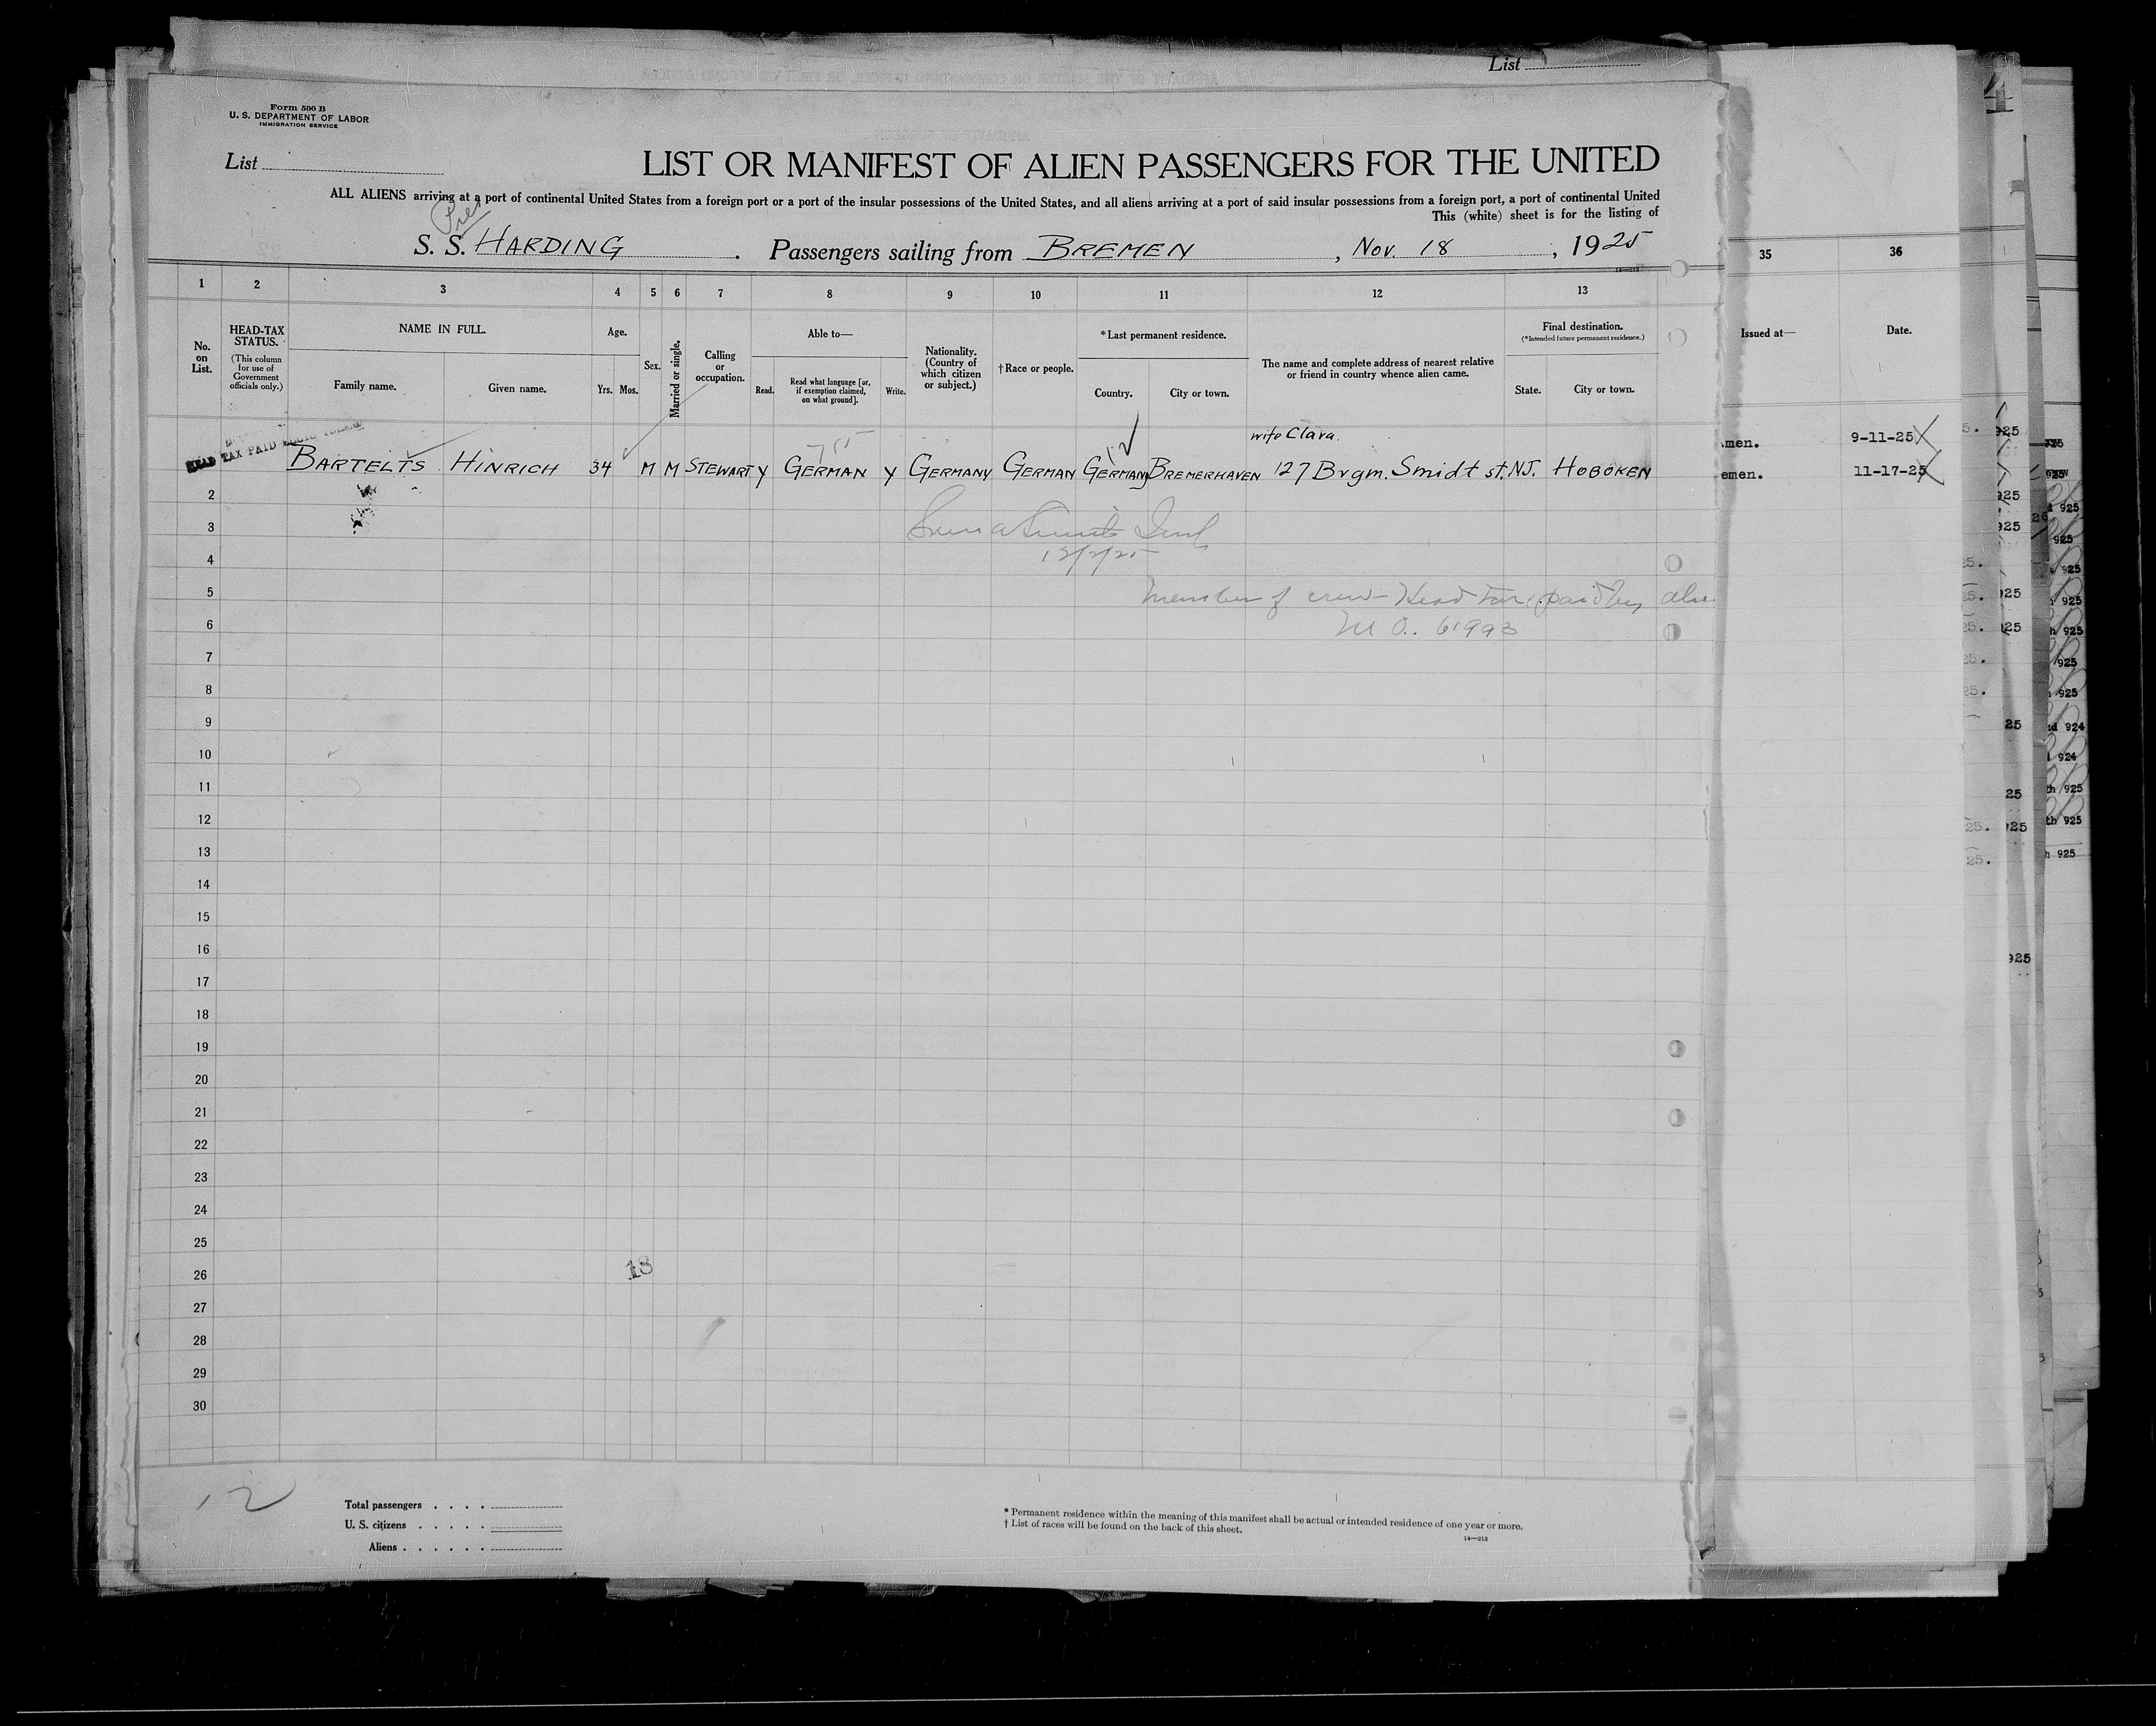 List
Form 500 B
U. S. DEPARTMENT OF LABOR
IMMIGRATION SERVICE
List
LIST OR MANIFEST OF ALIEN PASSENGERS FOR THE UNITED
ALL ALIENS arriving at a port of continental United States from a foreign port or a port of the insular possessions of the United States, and all aliens arriving at a port of said insular possessions from a foreign port, a port of continental United
This (white) sheet is for the listing of
Pres
S. S. HARDING . Passengers sailing from BREMEN , Nov. 18 , 1925
14—213
1 2 3 4 5 6 7 8 9 10 11 12 13 35 36
No. on List.
HEAD-TAX STATUS.
(This column for use of Government officials only.)
NAME IN FULL.
Family name. Given name.
Age.
Yrs. Mos.
Sex.
Married or single.
Calling or occupation.
Able to—
Read. Read what language [or, if exemption claimed, on what ground]. Write.
Nationality. (Country of which citizen or subject.)
† Race or people.
* Last permanent residence.
Country. City or town.
The name and complete address of nearest relative or friend in country whence alien came.
Final destination.
(*Intended future permanent residence.)
State. City or town.
Issued at— Date.
HEAD TAX PAID ELLIS ISLAND
wife Clara.
BARTELTS HINRICH 34 M M STEWART Y GERMAN Y GERMANY GERMAN GERMANY BREMERHAVEN 127 Brgm. Smidt st. NJ. HOBOKEN
men. 9-11-25
emen. 11-17-25
2
3
12/2/25
4
5
Member of crew - Head tax paid by
6
M O. 61993
7
8
9
10
11
12
13
14
15
16
17
18
19
20
21
22
23
24
25
26
18
27
28
29
30
12
Total passengers
U. S. citizens
Aliens
* Permanent residence within the meaning of this manifest shall be actual or intended residence of one year or more.
† List of races will be found on the back of this sheet.
14—213